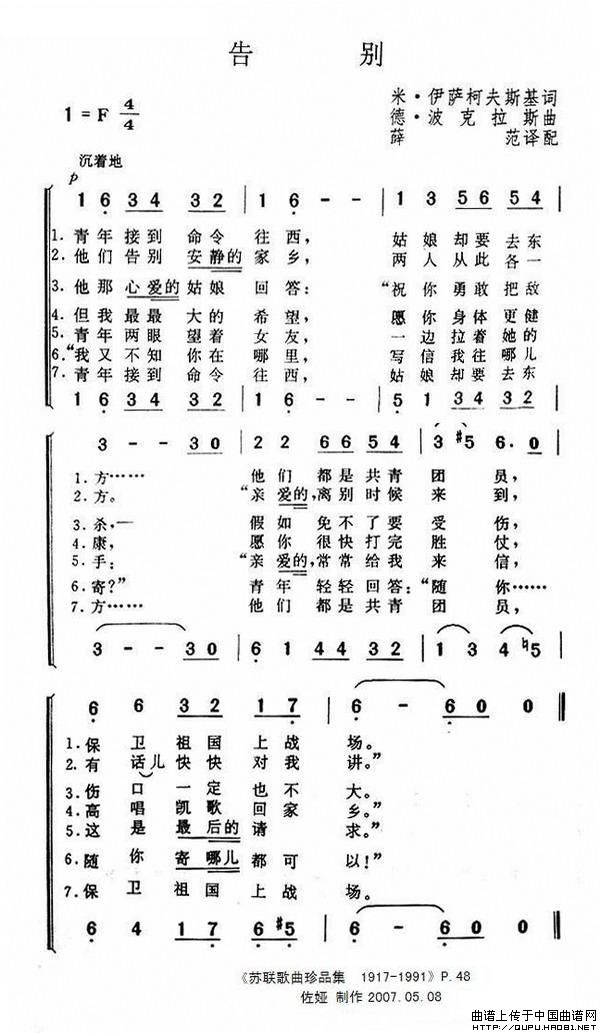 告 别
1=F 4/4
米·伊萨柯夫斯基词
德·波克拉斯曲
薛 范译配
沉着地
p
1 6 3 4 3 2 | 1 6 - - | 1 3 5 6 5 4
1. 青年接到 命令 往西, 姑娘却要去东
2. 他们告别 安静的家乡, 两人从此各一
3. 他那心爱的姑娘 回答: “祝你勇敢把敌
4. 但我最最 大的 希望, 愿你身体更健
5. 青年两眼 望着 女友, 一边拉着她的
6.“我又不知 你在 哪里, 写信我往哪儿
7. 青年接到 命令 往西, 姑娘却要去东
1 6 3 4 3 2 | 1 6 - - | 5 1 3 4 3 2
3 - - 3 0 | 2 2 6 6 5 4 | 3 #5 6. 0
1. 方…… 他们 都是共青 团 员,
2. 方。 “亲爱的,离别时候 来 到,
3. 杀,— 假如 免不了要 受 伤,
4. 康, 愿你 很快打完 胜 仗,
5. 手: “亲爱的,常常给我 来 信,
6. 寄?” 青年 轻轻回答:“随 你……
7. 方…… 他们 都是共青 团 员,
3 - - 3 0 | 6 1 4 4 3 2 | 1 3 4 ♮5
6 6 3 2 1 7 | 6 - 6 0 0
1. 保 卫 祖国 上战 场。
2. 有 话儿快快 对我 讲。”
3. 伤 口 一定 也不 大。
4. 高 唱 凯歌 回家 乡。”
5. 这 是 最后的请 求。”
6. 随 你 寄哪儿都可 以!”
7. 保 卫 祖国 上战 场。
6 4 1 7 6 #5 | 6 - 6 0 0
《苏联歌曲珍品集 1917-1991》P.48
佐娅 制作 2007.05.08
曲谱上传于中国曲谱网
HTTP://QUPU.HAO81.NET